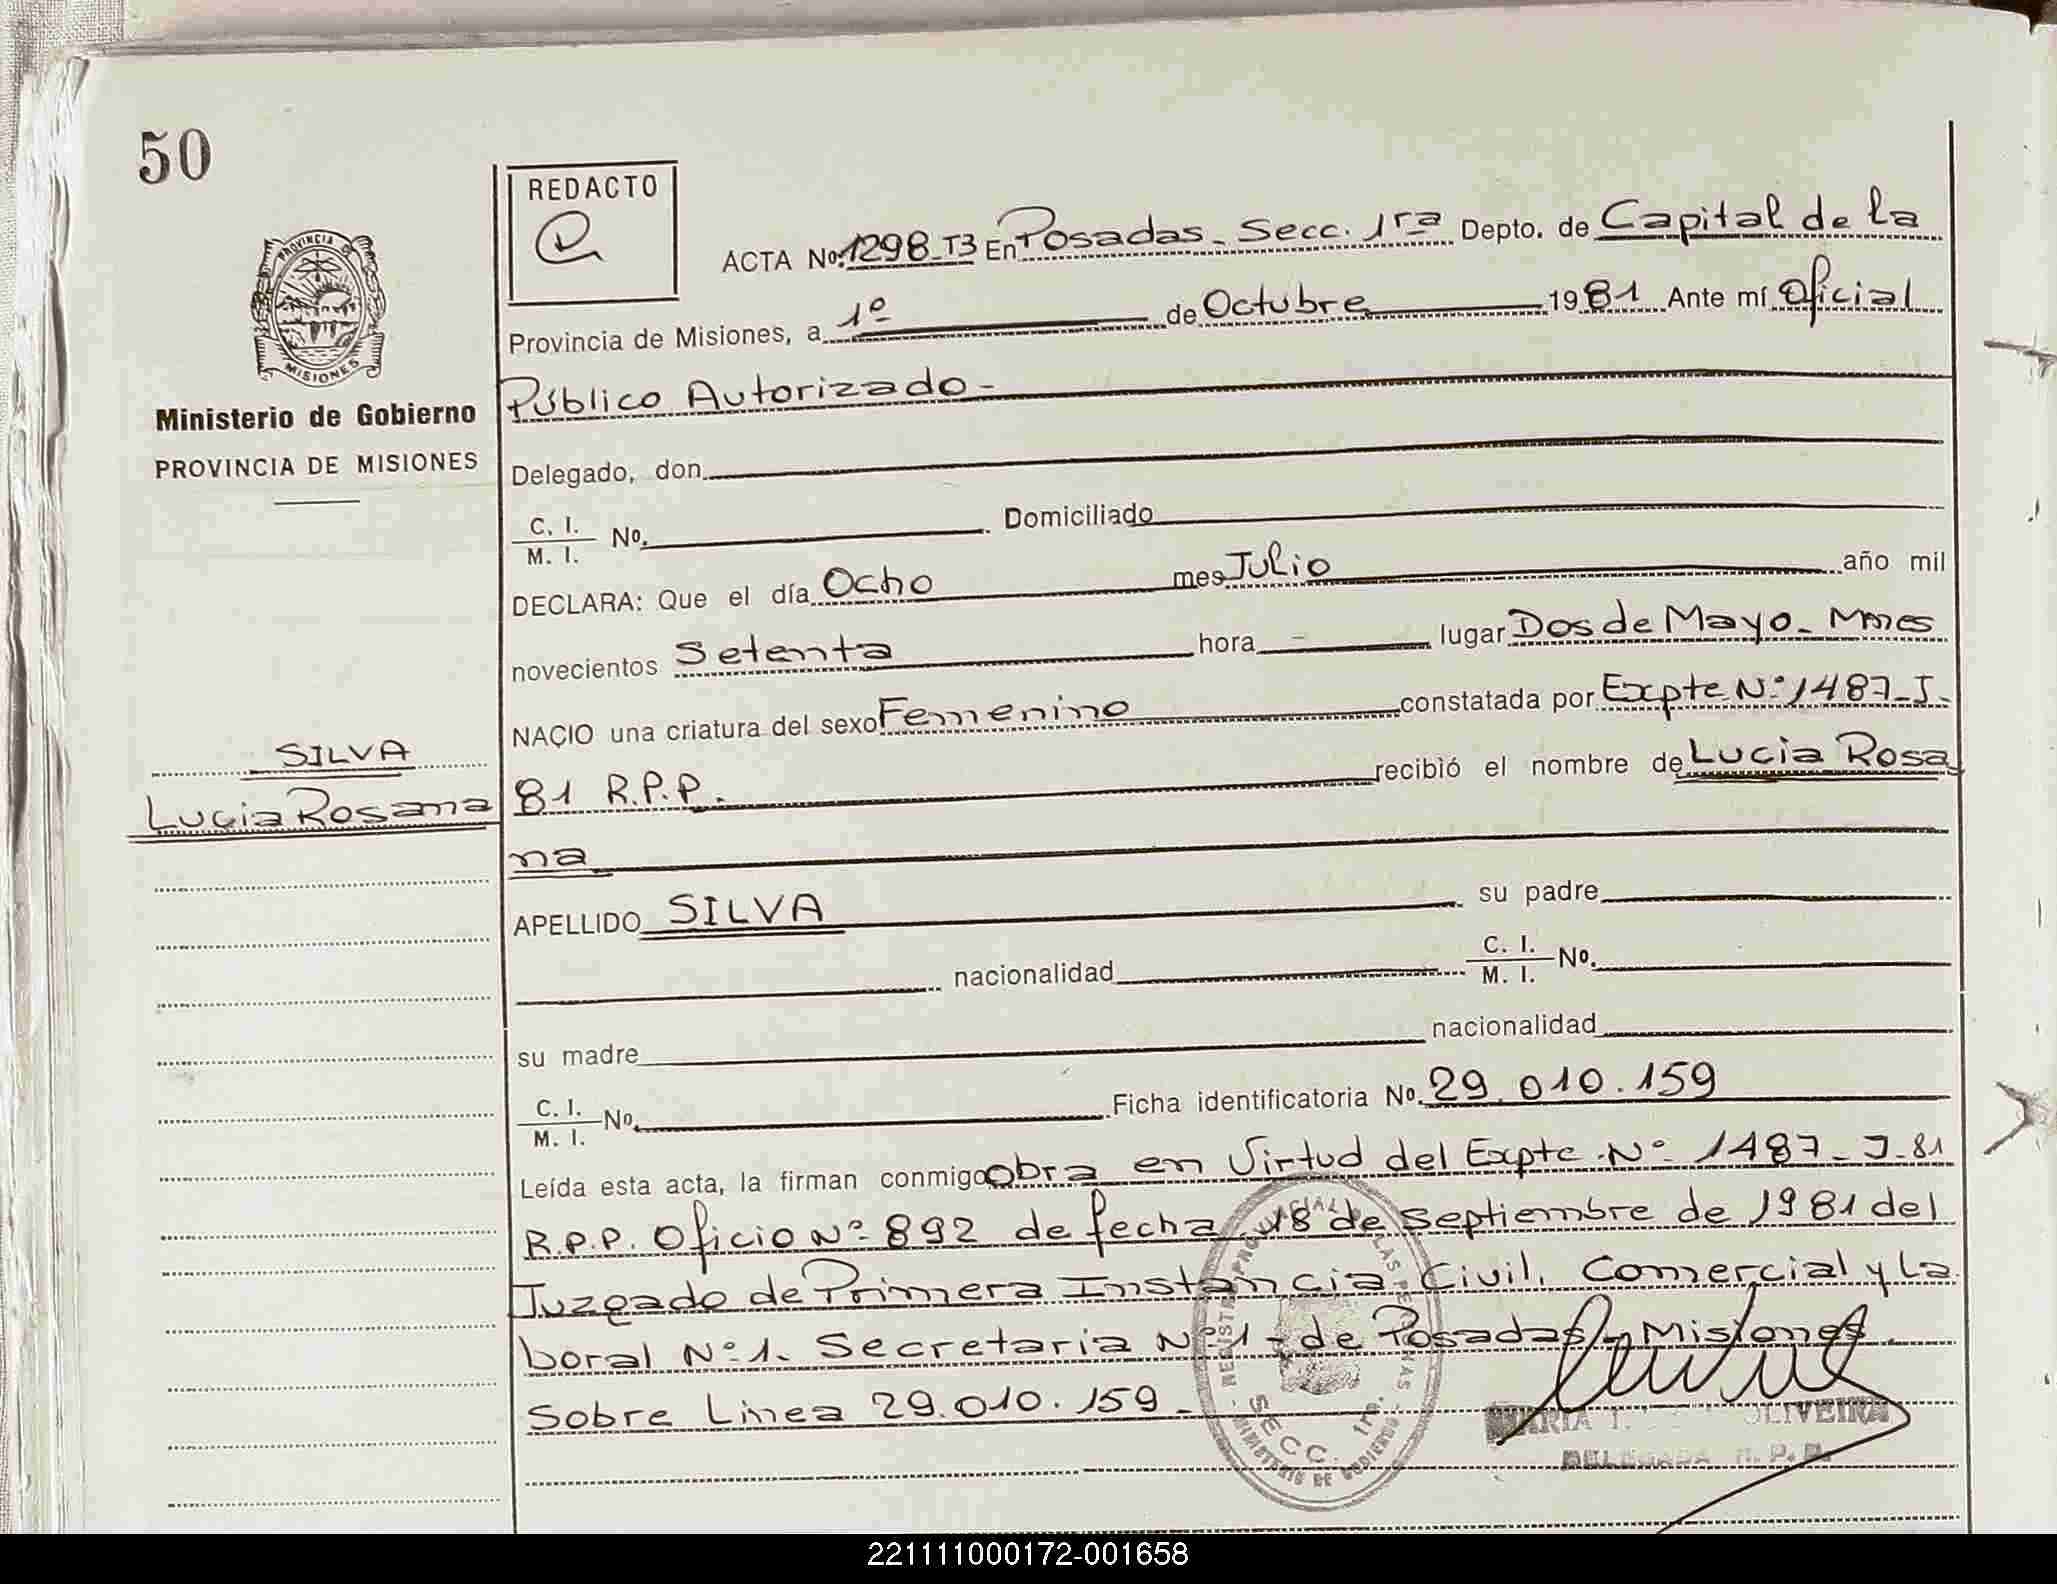 50
REDACTO
ACTA No. 1298-T3 En Posadas - Secc. 1ra Depto. de Capital de la
Provincia de Misiones, a 1º de Octubre 1981 Ante mí Oficial
Público Autorizado -
PROVINCIA DE MISIONES
Ministerio de Gobierno
PROVINCIA DE MISIONES
Delegado, don
C. I.
M. I. No. Domiciliado
DECLARA: Que el día Ocho mes Julio año mil
novecientos Setenta hora - lugar Dos de Mayo - Mnes
NACIO una criatura del sexo Femenino constatada por Expte Nº 1487-J-
81 R.P.P. recibió el nombre de Lucia Rosa
na
SILVA
Lucia Rosana
APELLIDO SILVA su padre
nacionalidad C. I.
M. I. No.
su madre nacionalidad
C. I.
M. I. No. Ficha identificatoria No. 29.010.159
Leída esta acta, la firman conmigo obra en Virtud del Expte Nº 1487-J-81
R.P.P. Oficio Nº 892 de fecha 18 de Septiembre de 1981 del
Juzgado de Primera Instancia Civil, Comercial y La
boral Nº 1. Secretaria Nº 1 - de Posadas - Misiones.
Sobre Linea 29.010.159 -
REGISTRO PROVINCIAL DE LAS PERSONAS
SECC. 1ra.
MINISTERIO DE GOBIERNO
MARIA T. OLIVEIRA
DELEGADA R.P.P.
221111000172-001658